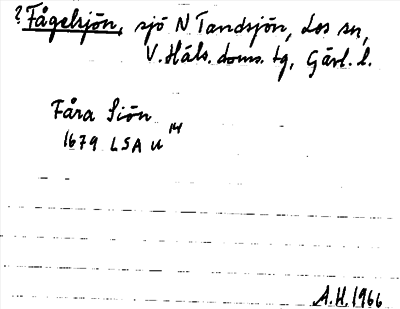 ? Fågelsjön, sjö N Tandsjön, Los sn,
V. Häls. doms. tg, Gävl. l.
Fåra Siön
1679 LSA U 14
A.H. 1966